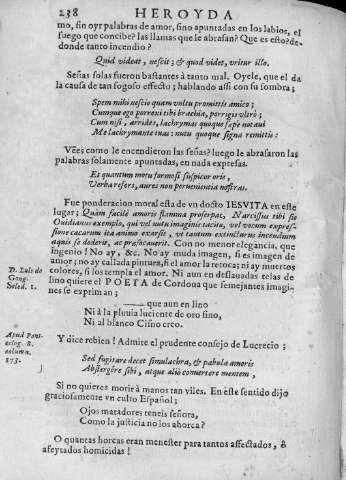 238 HEROYDA
mo, sin oyr palabras de amor, sino apuntadas en los labios, el
fuego que concibe? las llamas que le abrasan? Que es esto? de
donde tanto incendio?
Quid videat, nescit; & quod videt, vritur illo.
Señas solas fueron bastantes à tanto mal. Oyele, que el da
la causa de tan fogoso effecto; hablando assi con su sombra;
Spem mihi nescio quam vultu promittis amico;
Cumque ego porrexi tibi brachia, porrigis vltrò;
Cum risi, arrides, lachrymas quoque sæpè notaui
Me lachrymante tuas: nutu quoque signa remittis:
Vèes como le encendieron las señas? luego le abrasaron las
palabras solamente apuntadas, en nada expresas.
Et quantum motu formosi suspicor oris,
Verba refers, aures non peruenientia nostras.
Fue ponderacion moral esta de vn docto IESVITA en este
lugar; Quàm facilè amoris flamma proserpat, Narcissus tibi sit
Ouidianus exemplo, qui vel nutu imaginis tacitu, vel vocum expres-
sione cacarum ita animo exarsit, vt tantum extincturus incendium
aquis se dederit, ac præfocauerit. Con no menor elegancia, que
ingenio! No ay, &c. No ay muda imagen, si es imagen de
amor; no ay callada pintura, si el amor la retoca; ni ay muertos
D. Luis de colores, si los templa el amor. Ni aun en deslauadas telas de
Gong. lino quiere el POETA de Cordoua que semejantes imagi-
Soled. 1. nes se expriman;
que aun en lino
Ni à la pluuia luciente de oro fino,
Ni al blanco Cisno creo.
Apud Pont- Y dice rebien! Admite el prudente consejo de Lucrecio;
column. Sed fugitare decet simulachra, & pabula amoris
273. Abstergêre sibi, atque aliò conuertere mentem,
Si no quieres morir à manos tan viles. En èste sentido dijo
graciosamente vn culto Español;
Ojos matadores teneis señora,
Como la justicia no los ahorca?
O quantas horcas eran menester para tantos affectados, ò
afeytados homicidas!